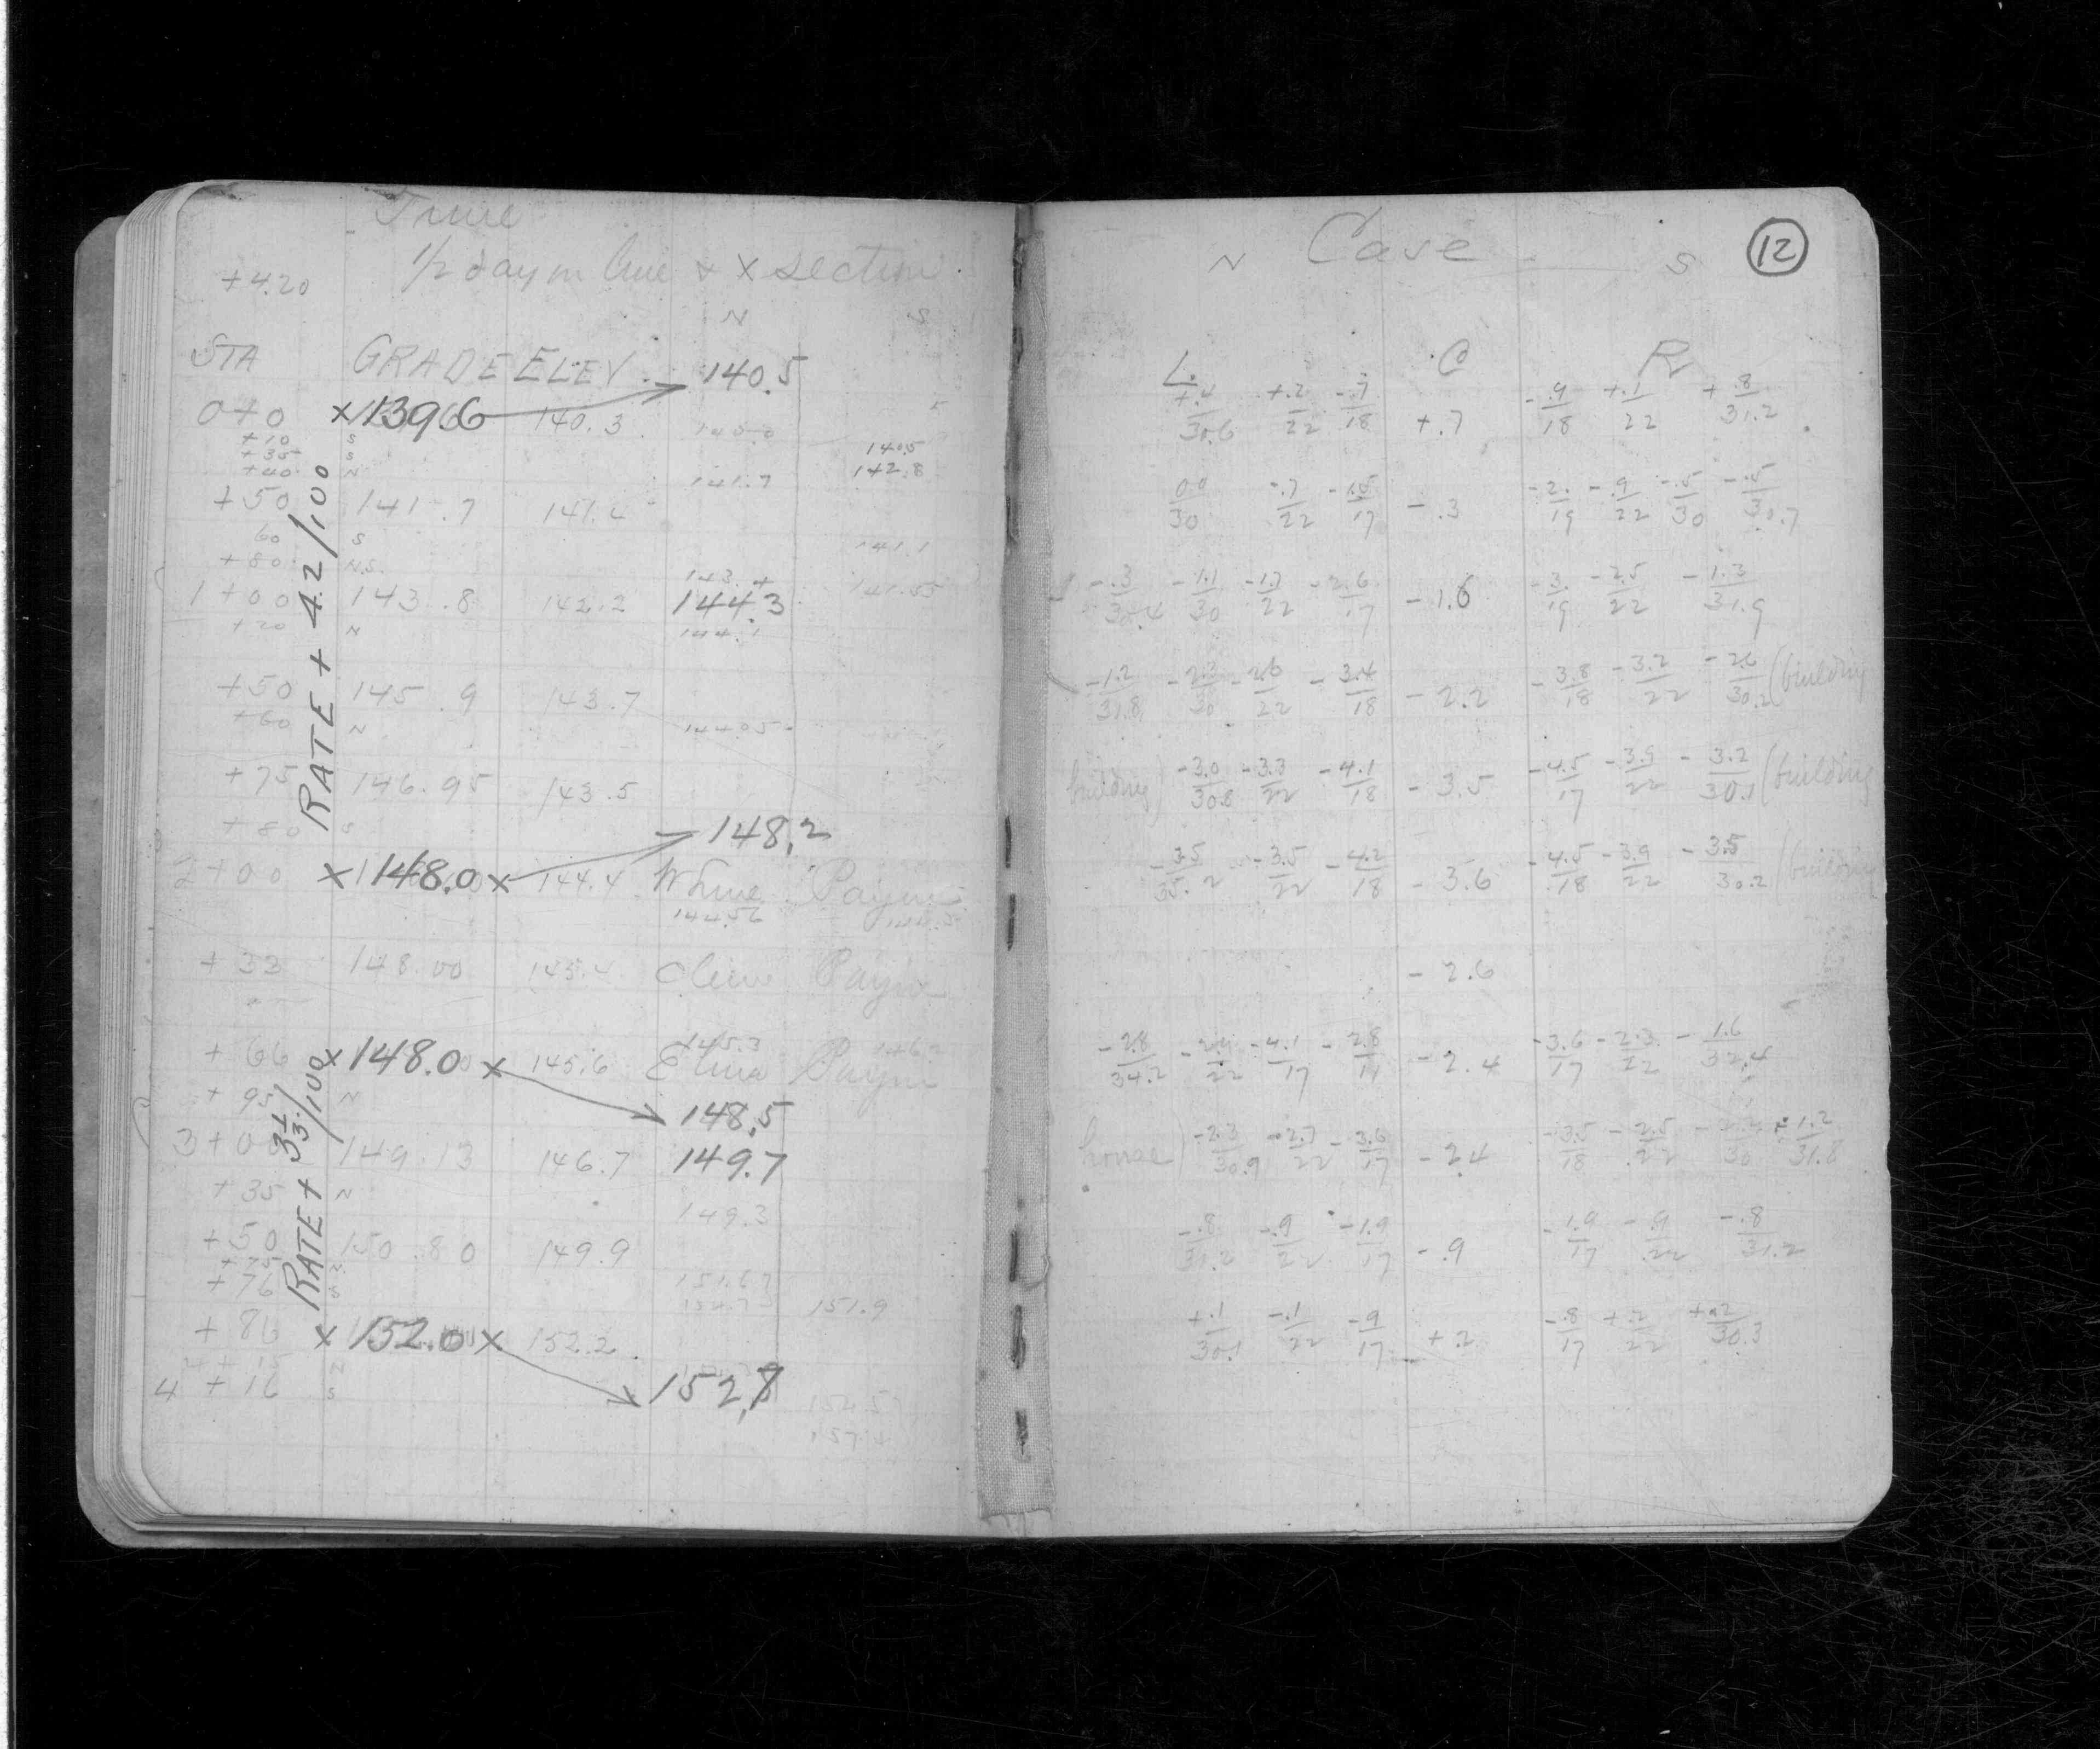 Time
1/2 day on line & x section
+4.20
N S
STA GRADE ELEV. 140.5
0+0 ×139.6 140.3
+10 S
+35 S 140.5
+40 N 141.7 142.8
+50 141.7 141.4
60 S 141.1
+80 N.S. 143.4 141.55
1+00 143.8 142.2 144.3
+20 N 144.1
+50 145.9 143.7
+60 N 144.05
+75 146.95 143.5
+80 S 148.2
2+00 ×148.0× 144.4 W Line Payne
144.56
+33 148.00 145.4 Cline Payne
145.3
+66 ×148.0× 145.6 E Line Payne
+95 N 148.5
3+00 149.13 146.7 149.7
+35 N 149.3
+50 150.80 149.9
+75 N 151.67
+76 S 151.9
+86 ×152.0× 152.2
4+15 N
4+16 S 152.7
RATE + 4.2/100
RATE + 3 1/3/100
N Case S 12
L. C R
+.4/30.6 +.2/22 -.7/18 +.7 -.9/18 +.1/22 +.8/31.2
00/30 -.7/22 -1.5/17 -.3 -2./19 -.9/22 -.5/30 -.5/30.7
-.3/30.4 -1.1/30 -1.7/22 -2.6/17 -1.6 -3./19 -2.5/22 -1.3/31.9
-1.2/31.8 -2.3/30 -2.6/22 -3.4/18 -2.2 -3.8/18 -3.2/22 -2.6/30.2 (building
building) -3.0/30.8 -3.3/22 -4.1/18 -3.5 -4.5/17 -3.9/22 -3.2/30.1 (building
-3.5/35.2 -3.5/22 -4.2/18 -3.6 -4.5/18 -3.9/22 -3.5/30.2 (building
-2.6
-2.8/34.2 -4.1/17 -2.4 -3.6/17 -2.3/22 -1.6/32.4
house) -2.3/30.9 -2.7/22 -3.6/17 -2.4 -3.5/18 -2.5/22 -1.2/31.8
-.8/31.2 -.9/22 -1.9/17 -.9 -1.9/17 -.9/22 -.8/31.2
+.1/30.1 -.1/22 -.9/17 +.2 -.8/17 +.2/22 +.2/30.3